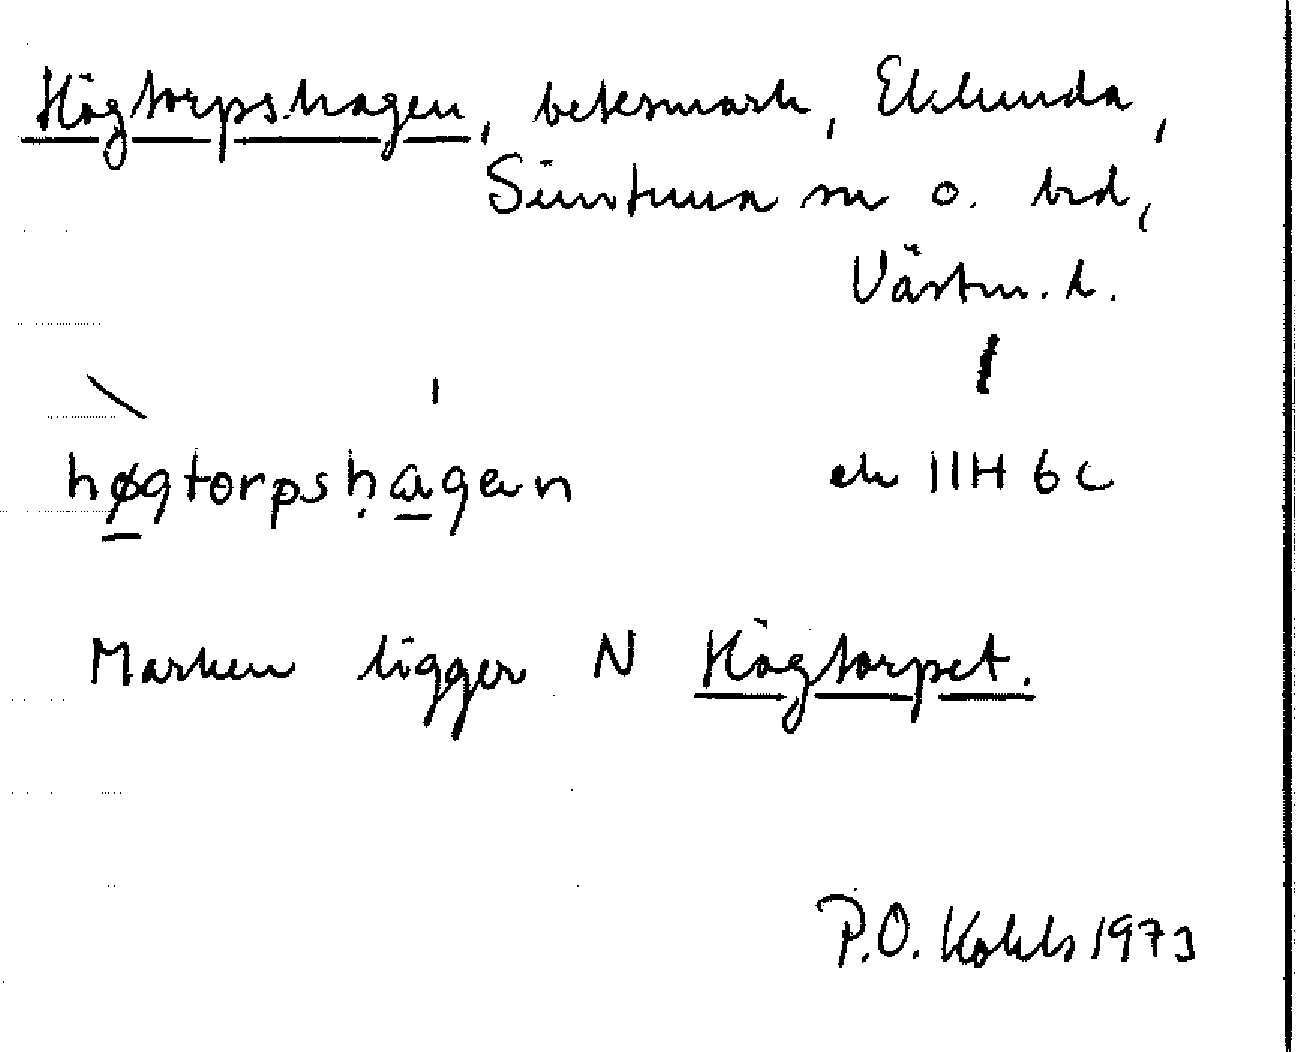 Högtorpshagen, betesmark, Eklunda,
Simtuna sn o. hd,
Västm. l.
høgtorpshagen ek 11H 6c
Marken ligger N Högtorpet.
P.O. 1973